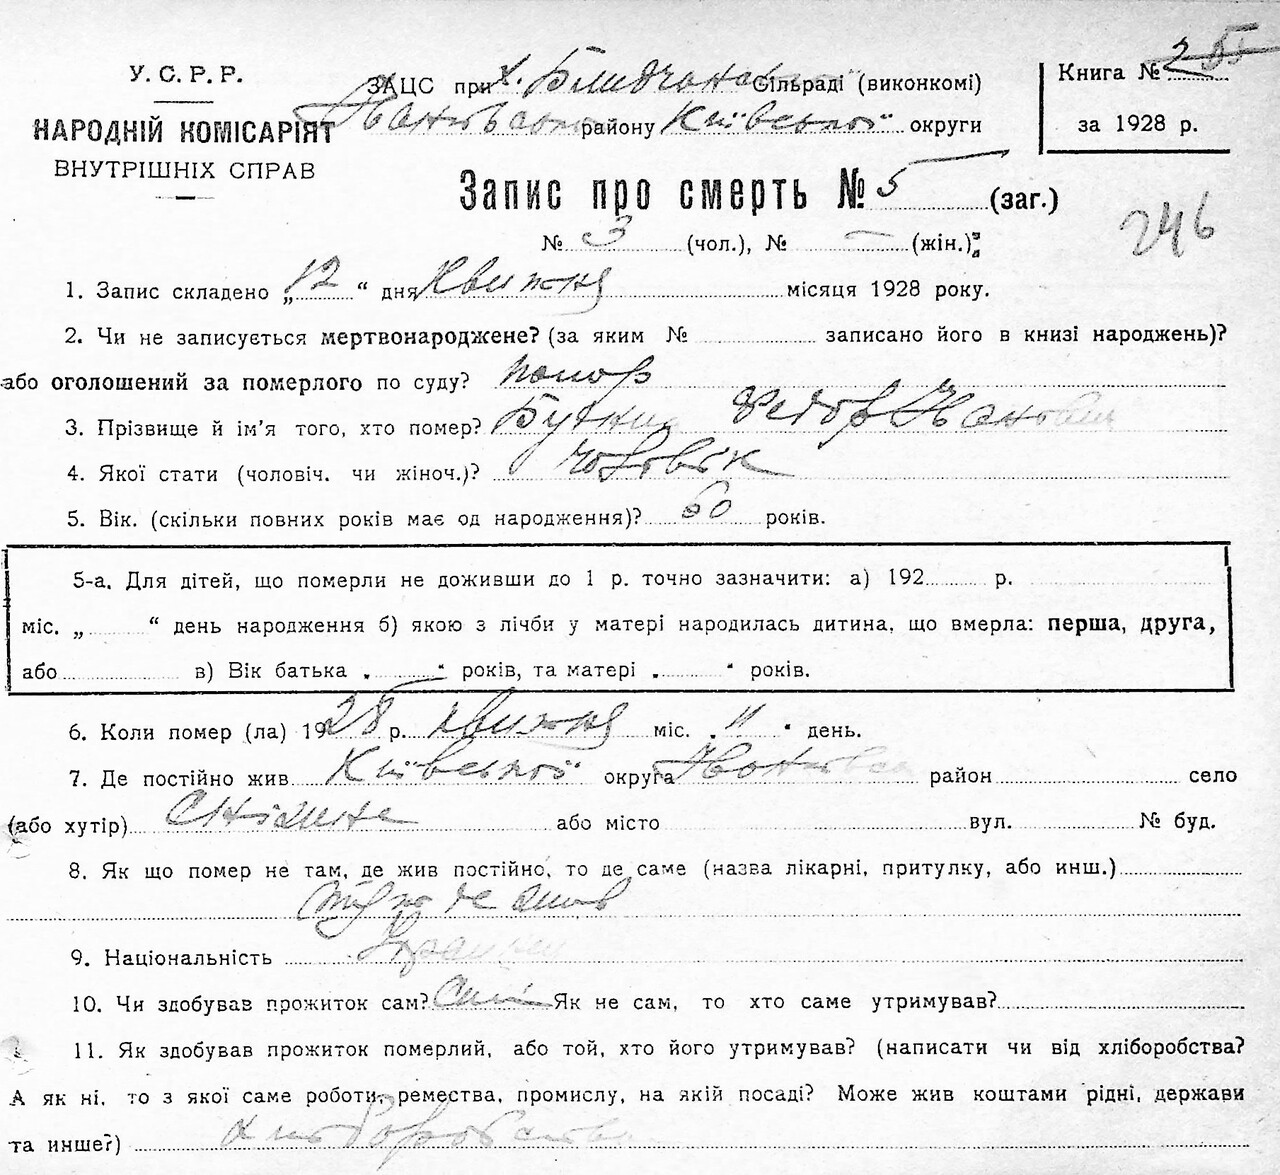 У. С. Р. Р.
НАРОДНІЙ КОМІСАРІЯТ
ВНУТРІШНІХ СПРАВ
ЗАЦС при х. сільраді (виконкомі)
району Київської округи
Книга № 2
за 1928 р.
Запис про смерть № 5 (заг.)
№ 3 (чол.), № — (жін.);
246
1. Запис складено „12“ дня Квітня місяця 1928 року.
2. Чи не записується мертвонароджене? (за яким № записано його в книзі народжень)?
або оголошений за померлого по суду? помер
3. Прізвище й ім'я того, хто помер? Федор Іванович
4. Якої стати (чоловіч. чи жіноч.)? чоловік
5. Вік. (скільки повних років має од народження)? 60 років.
5-а. Для дітей, що померли не доживши до 1 р. точно зазначити: а) 192 р.
міс. „ “ день народження б) якою з лічби у матері народилась дитина, що вмерла: перша, друга,
або в) Вік батька „ “ років, та матері „ “ років.
6. Коли помер (ла) 1928 р. квітня міс. „11“ день.
7. Де постійно жив Київської округа район село
(або хутір) або місто вул. № буд.
8. Як що помер не там, де жив постійно, то де саме (назва лікарні, притулку, або инш.)
9. Національність
10. Чи здобував прожиток сам? Сам Як не сам, то хто саме утримував?
11. Як здобував прожиток померлий, або той, хто його утримував? (написати чи від хліборобства?
А як ні, то з якої саме роботи, ремества, промислу, на якій посаді? Може жив коштами рідні, держави
та инше?) хліборобство